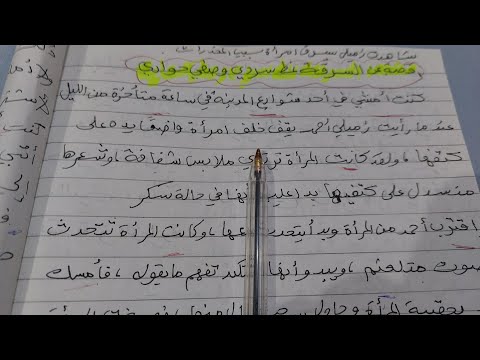 شاهدت زميل يسرق امرأة بسبب المخدرات
قصة عن السرقة بنمط سردي وصفي حواري
كنت أمشي في أحد شوارع المدينة في ساعة متأخرة من الليل
عندما رأيت زميلي أحمد يقف خلف امرأة واضعا يده على
كتفها ولقد كانت المرأة ترتدي ملابس شفافة وشعرها
منسدل على كتفيها يبدا عليها أنها في حالة سكر
اقترب أحمد من المرأة وبدأ يتحدث معها، وكانت المرأة تتحدث
بصوت متلعثم، ويبدو أنها تكد تفهم ما يقوله، فأمسك
بحقيبة المرأة وحاول